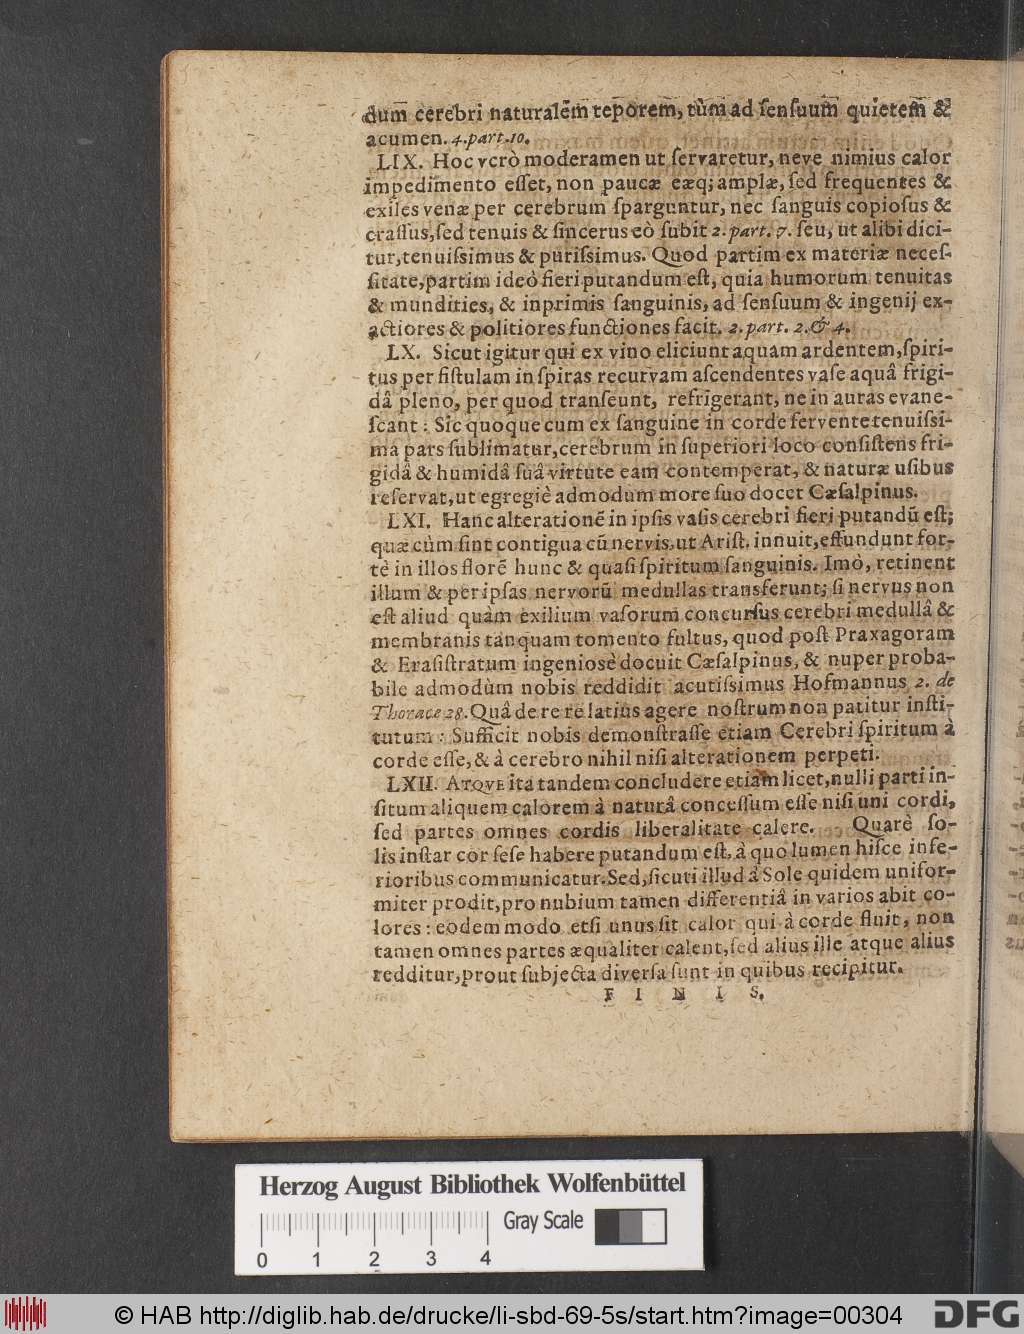 dum̄ cerebri naturalēm teporem, tùm ad ſenſuum quietem &
acumen. 4. part. 10.
LIX. Hoc verò moderamen ut ſervaretur, neve nimius calor
impedimento eſſet, non paucæ eæq; amplæ, ſed frequentes &
exiles venæ per cerebrum ſparguntur, nec ſanguis copioſus &
craſſus, ſed tenuis & ſincerus eò ſubit 2. part. 7. ſeu, ut alibi dici-
tur, tenuiſsimus & puriſsimus. Quod partim ex materiæ neceſ-
ſitate, partim ideò fieri putandum eſt, quia humorum tenuitas
& mundities, & inprimis ſanguinis, ad ſenſuum & ingenij ex-
actiores & politiores functiones facit. 2. part. 2. & 4.
LX. Sicut igitur qui ex vino eliciunt aquam ardentem, ſpiri-
tus per fiſtulam in ſpiras recurvam aſcendentes vaſe aquâ frigi-
dâ pleno, per quod tranſeunt, refrigerant, ne in auras evane-
ſcant: Sic quoque cum ex ſanguine in corde fervente tenuiſsi-
ma pars ſublimatur, cerebrum in ſuperiori loco conſiſtens fri-
gidâ & humidâ ſuâ virtute eam contemperat, & naturæ uſibus
reſervat, ut egregiè admodum more ſuo docet Cæſalpinus.
LXI. Hanc alterationē in ipſis vaſis cerebri fieri putandū eſt;
quæ cùm ſint contigua cū nervis, ut Ariſt. innuit, effundunt for-
tè in illos florē hunc & quaſi ſpiritum ſanguinis. Imò, retinent
illum & per ipſas nervorū medullas transferunt; ſi nervus non
eſt aliud quàm exilium vaſorum concurſus cerebri medullâ &
membranis tanquam tomento fultus, quod poſt Praxagoram
& Eraſiſtratum ingeniosè docuit Cæſalpinus, & nuper proba-
bile admodùm nobis reddidit acutiſsimus Hofmannus 2. de
Thorace 28. Quâ de re re latius agere noſtrum non patitur inſti-
tutum: Sufficit nobis demonſtraſſe etiam Cerebri ſpiritum à
corde eſſe, & à cerebro nihil niſi alterationem perpeti.
LXII. ATQVE ita tandem concludere etiam licet, nulli parti in-
ſitum aliquem calorem à naturâ conceſſum eſſe niſi uni cordi,
ſed partes omnes cordis liberalitate calere. Quarè ſo-
lis inſtar cor ſeſe habere putandum eſt, à quo lumen hiſce infe-
rioribus communicatur. Sed, ſicuti illud â Sole quidem unifor-
miter prodit, pro nubium tamen differentiâ in varios abit co-
lores: eodem modo etſi unus ſit calor qui à corde fluit, non
tamen omnes partes æqualiter calent, ſed alius ille atque alius
redditur, prout ſubjecta diverſa ſunt in quibus recipitur.
F I N I S.
Herzog August Bibliothek Wolfenbüttel
Gray Scale
0 1 2 3 4
© HAB http://diglib.hab.de/drucke/li-sbd-69-5s/start.htm?image=00304
DFG